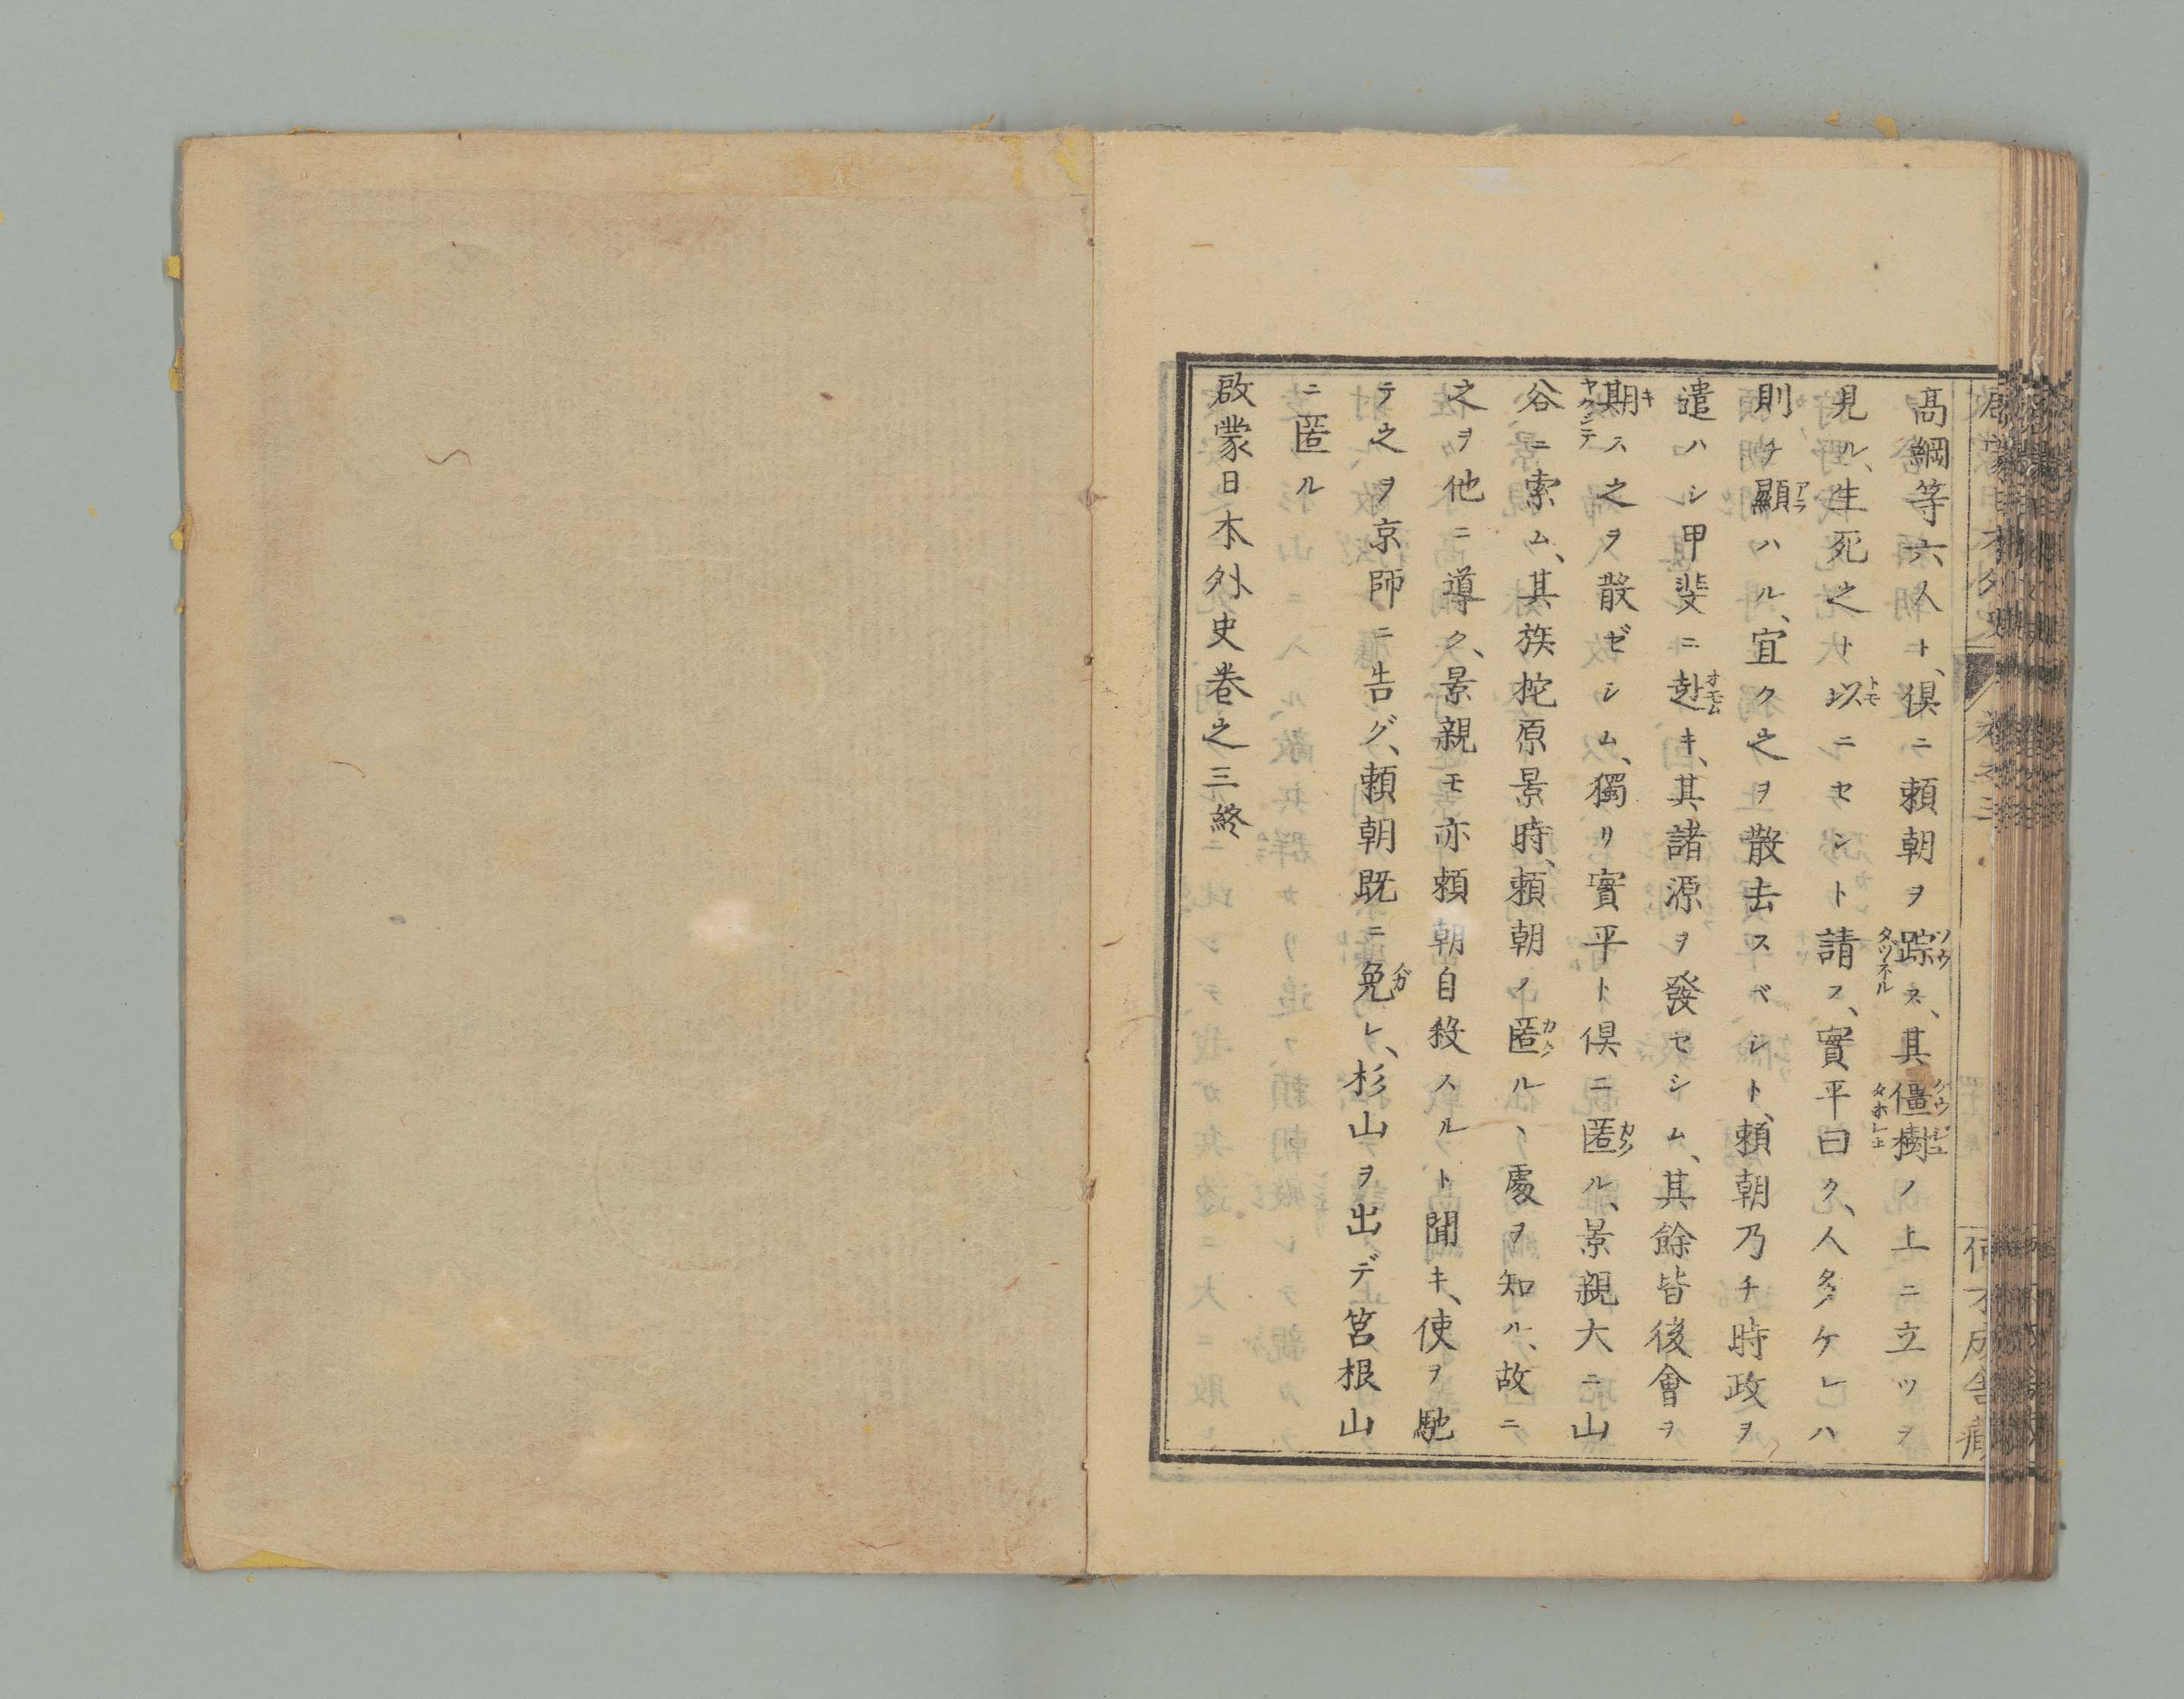 高綱等六人ト、倶ニ頼朝ヲ踪ス、其僵樹ノ上ニ立ツヲ
見ル、生死之ト以ニセント請フ、實平曰ク、人多ケレハ
則チ顯ハル、宜ク之ヲ散去スベシト、頼朝乃チ時政ヲ
遣ハシ甲斐ニ赴キ、其諸源ヲ發セシム、其餘皆後會ヲ
期ス之ヲ散ゼシム、獨リ實平ト倶ニ匿ル、景親大ニ山
谷ニ索ム、其族挓原景時、頼朝ノ匿ルヽ處ヲ知ル、故ニ
之ヲ他ニ導ク、景親モ亦頼朝自殺スルト聞キ、使ヲ馳
テ之ヲ京師ニ告グ、頼朝既ニ免レ、杉山ヲ出デ筥根山
ニ匿ル
啟蒙日本外史卷之三終